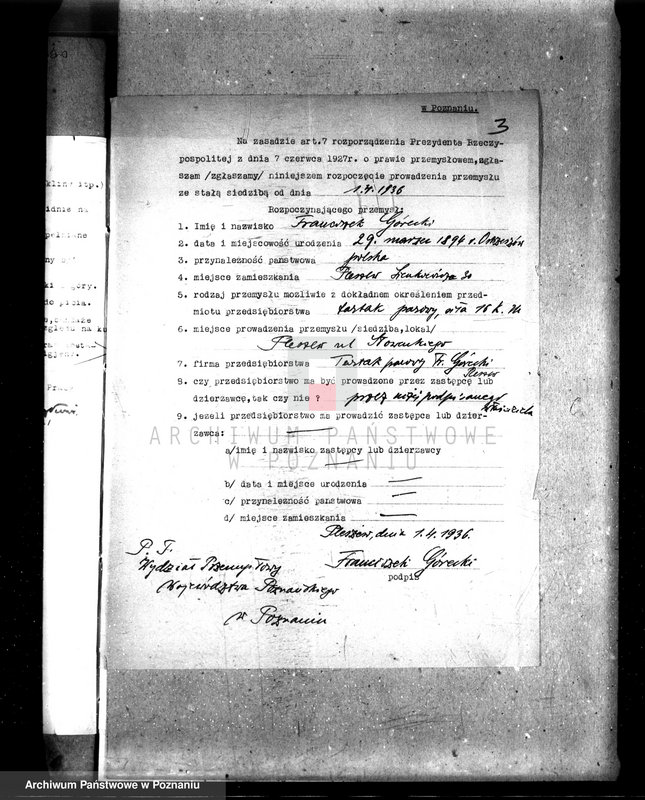 w Poznaniu.
3
Na zasadzie art.7 rozporządzenia Prezydenta Rzeczy-
pospolitej z dnia 7 czerwca 1927r. o prawie przemysłowem,zgła-
szam /zgłaszamy/ niniejszem rozpoczęcie prowadzenia przemysłu
ze stałą siedzibą od dnia 1.4.1936
Rozpoczynającego przemysł:
1. Imię i nazwisko Franciszek Górecki
2. data i miejscowość urodzenia 29. marzec 1894 r.
3. przynależność państwowa polska
4. miejsce zamieszkania Pleszew
5. rodzaj przemysłu możliwie z dokładnem określeniem przed-
miotu przedsiębiorstwa tartak parowy, siła 16 k. m
6. miejsce prowadzenia przemysłu /siedziba,lokal/
Pleszew ul
7. firma przedsiębiorstwa Tartak parowy Fr. Górecki
Pleszew
9. czy przedsiębiorstwo ma być prowadzone przez zastępcę lub
dzierżawcę,tak czy nie ? przez niżej podpisanego
właściciela
9. jeżeli przedsiębiorstwo ma prowadzić zastępca lub dzier-
żawca:
ARCHIWUM PAŃSTWOWE
W POZNANIU
a/imię i nazwisko zastępcy lub dzierżawcy
b/ data i miejsce urodzenia
c/ przynależność państwowa
d/ miejsce zamieszkania
Pleszew, dnia 1.4.1936.
P. T.
Wydział Przemysłowy
Województwa Poznańskiego
w Poznaniu
Franciszek Górecki
podpis
Archiwum Państwowe w Poznaniu